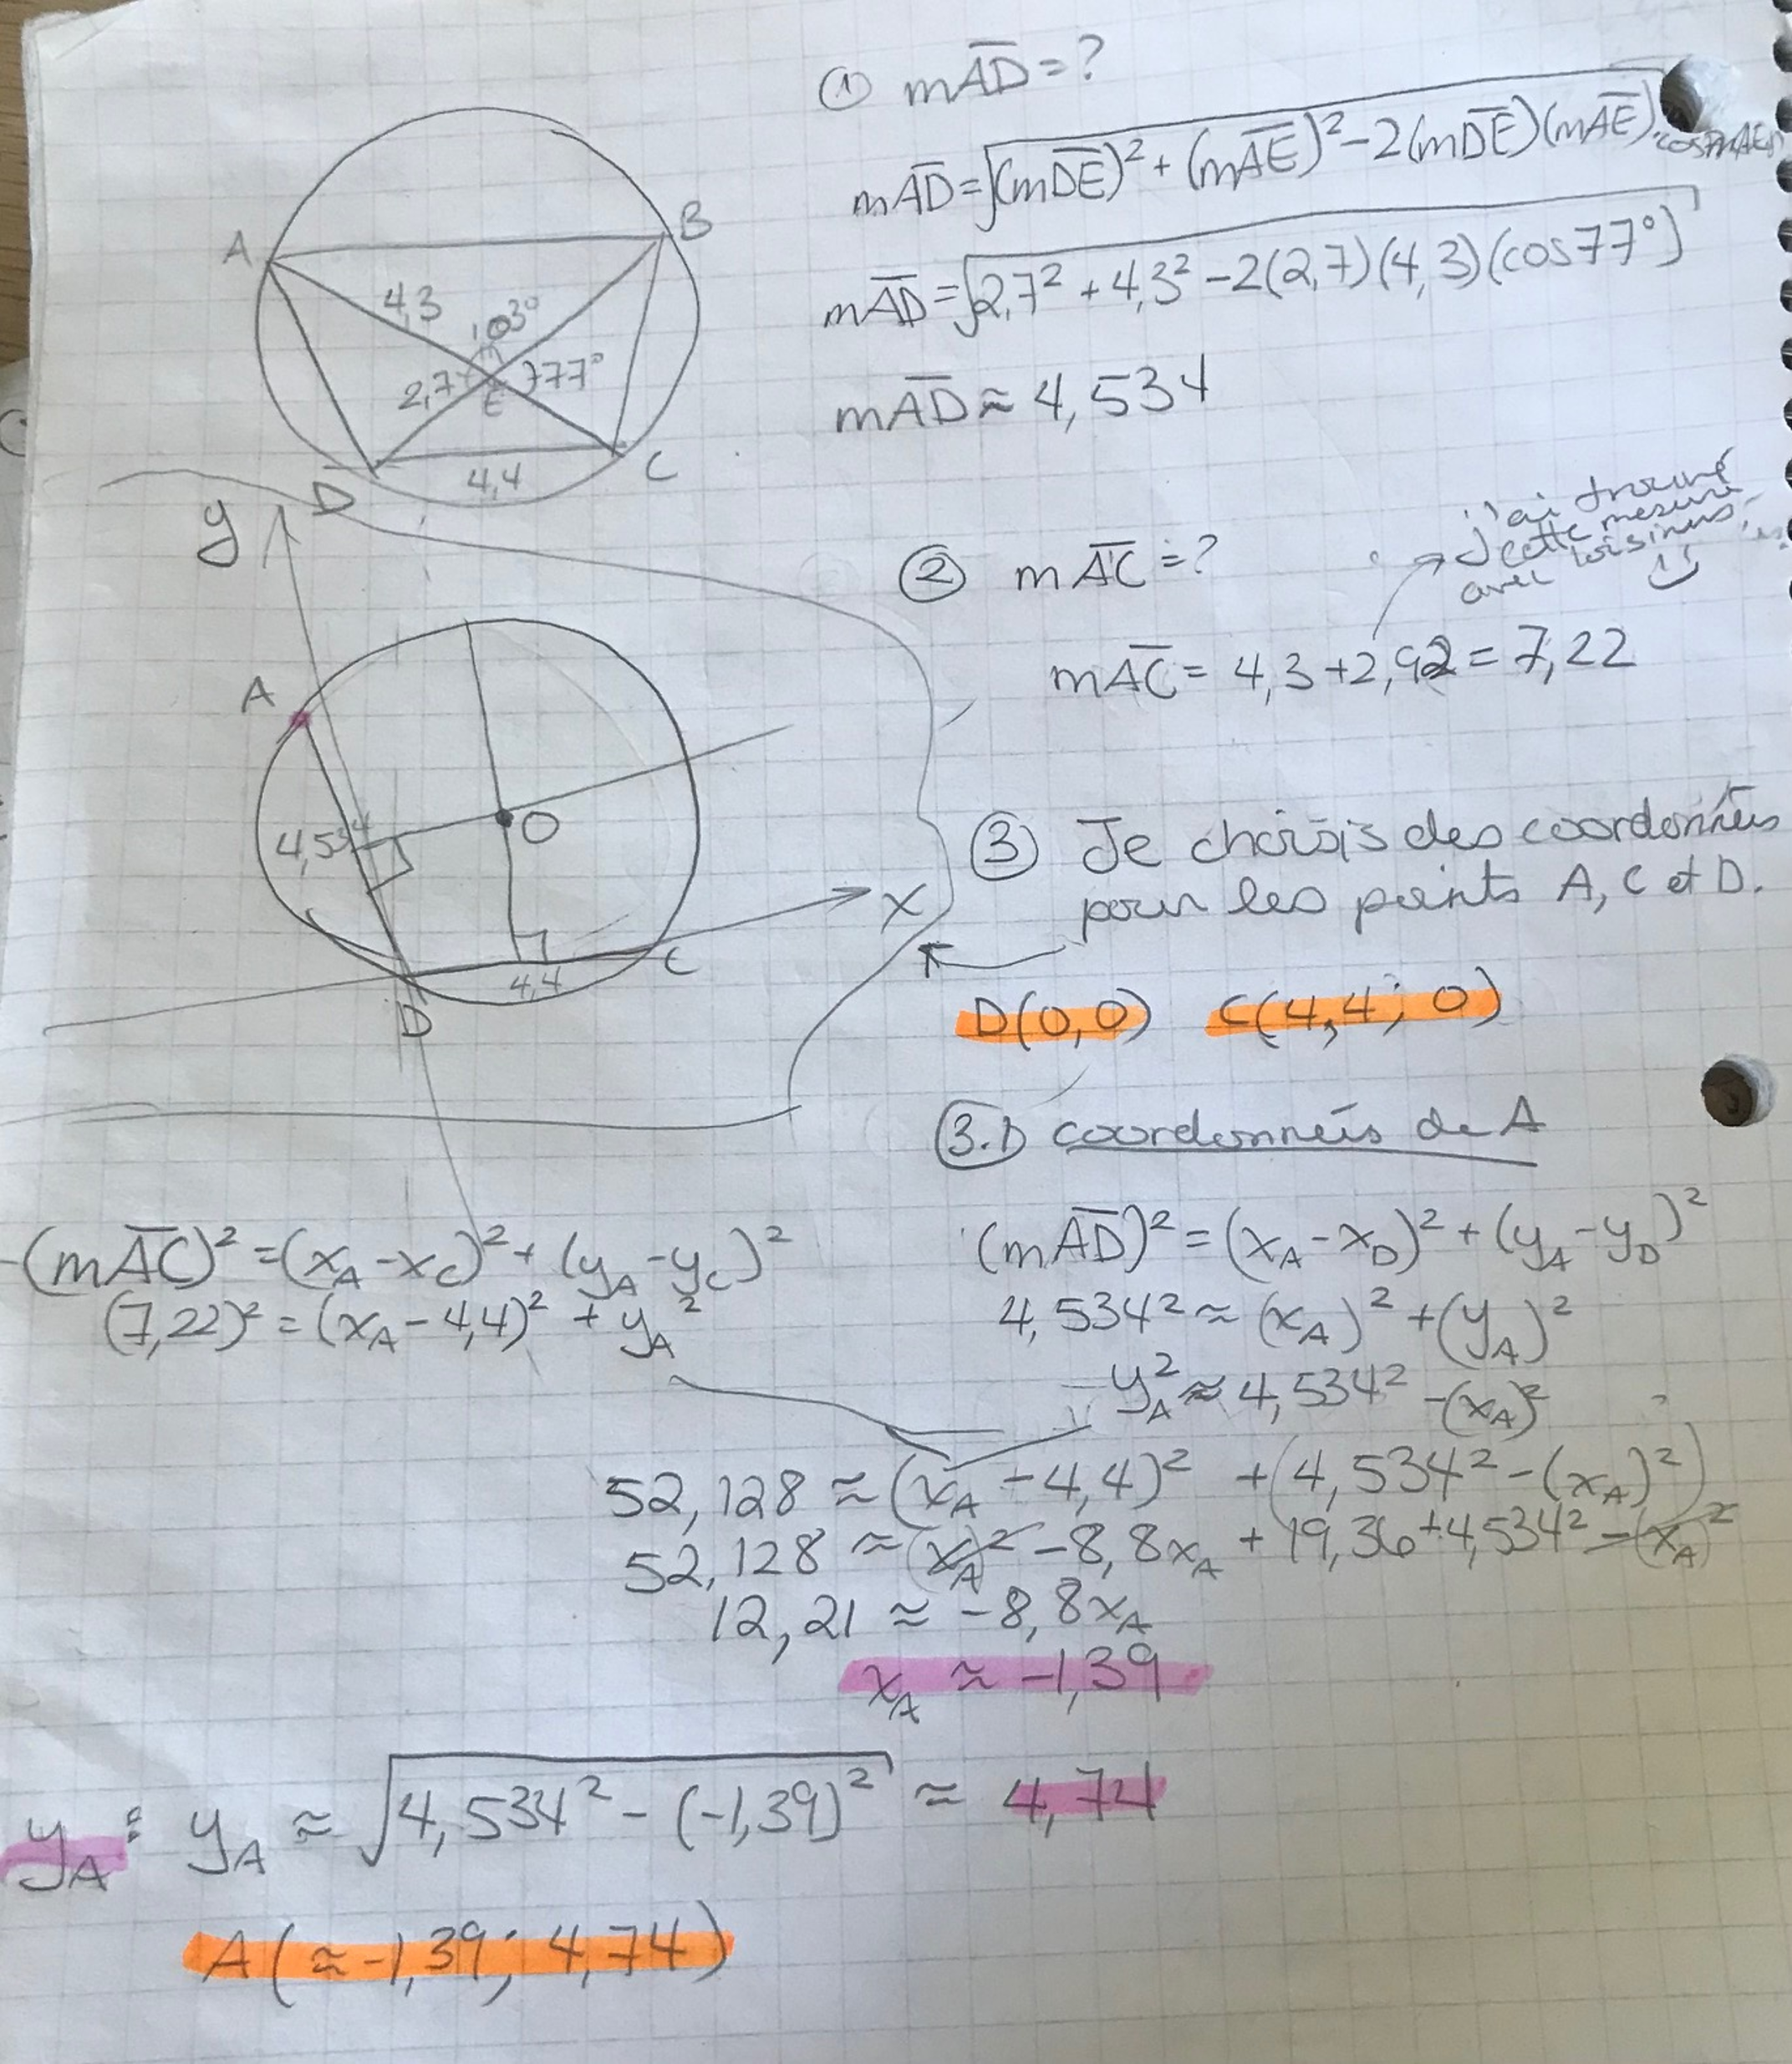 ① m A̅D̅ = ?
m A̅D̅ = √((m D̅E̅)² + (m A̅E̅)² - 2(m D̅E̅)(m A̅E̅)·
m A̅D̅ = √(2,7² + 4,3² - 2(2,7)(4,3)(cos 77°))
m A̅D̅ ≈ 4,534
A
B
4,3
103°
2,7
77°
E
4,4
D
C
② m A̅C̅ = ?
j'ai trouvé
cette mesure
avec loi sinus
m A̅C̅ = 4,3 + 2,92 = 7,22
y
A
4,534
O
x
4,4
C
D
③ Je choisis des coordonnées
pour les points A, C et D.
D(0,0) C(4,4; 0)
3.1 coordonnées de A
(m A̅C̅)² = (x_A - x_C)² + (y_A - y_C)²
(7,22)² = (x_A - 4,4)² + y_A²
(m A̅D̅)² = (x_A - x_D)² + (y_A - y_D)²
4,534² ≈ (x_A)² + (y_A)²
y_A² ≈ 4,534² - (x_A)²
52,128 ≈ (x_A - 4,4)² + (4,534² - (x_A)²)
52,128 ≈ (x_A)² - 8,8x_A + 19,36 + 4,534² - (x_A)²
12,21 ≈ -8,8x_A
x_A ≈ -1,39
y_A : y_A ≈ √(4,534² - (-1,39)²) ≈ 4,74
A(≈ -1,39; 4,74)